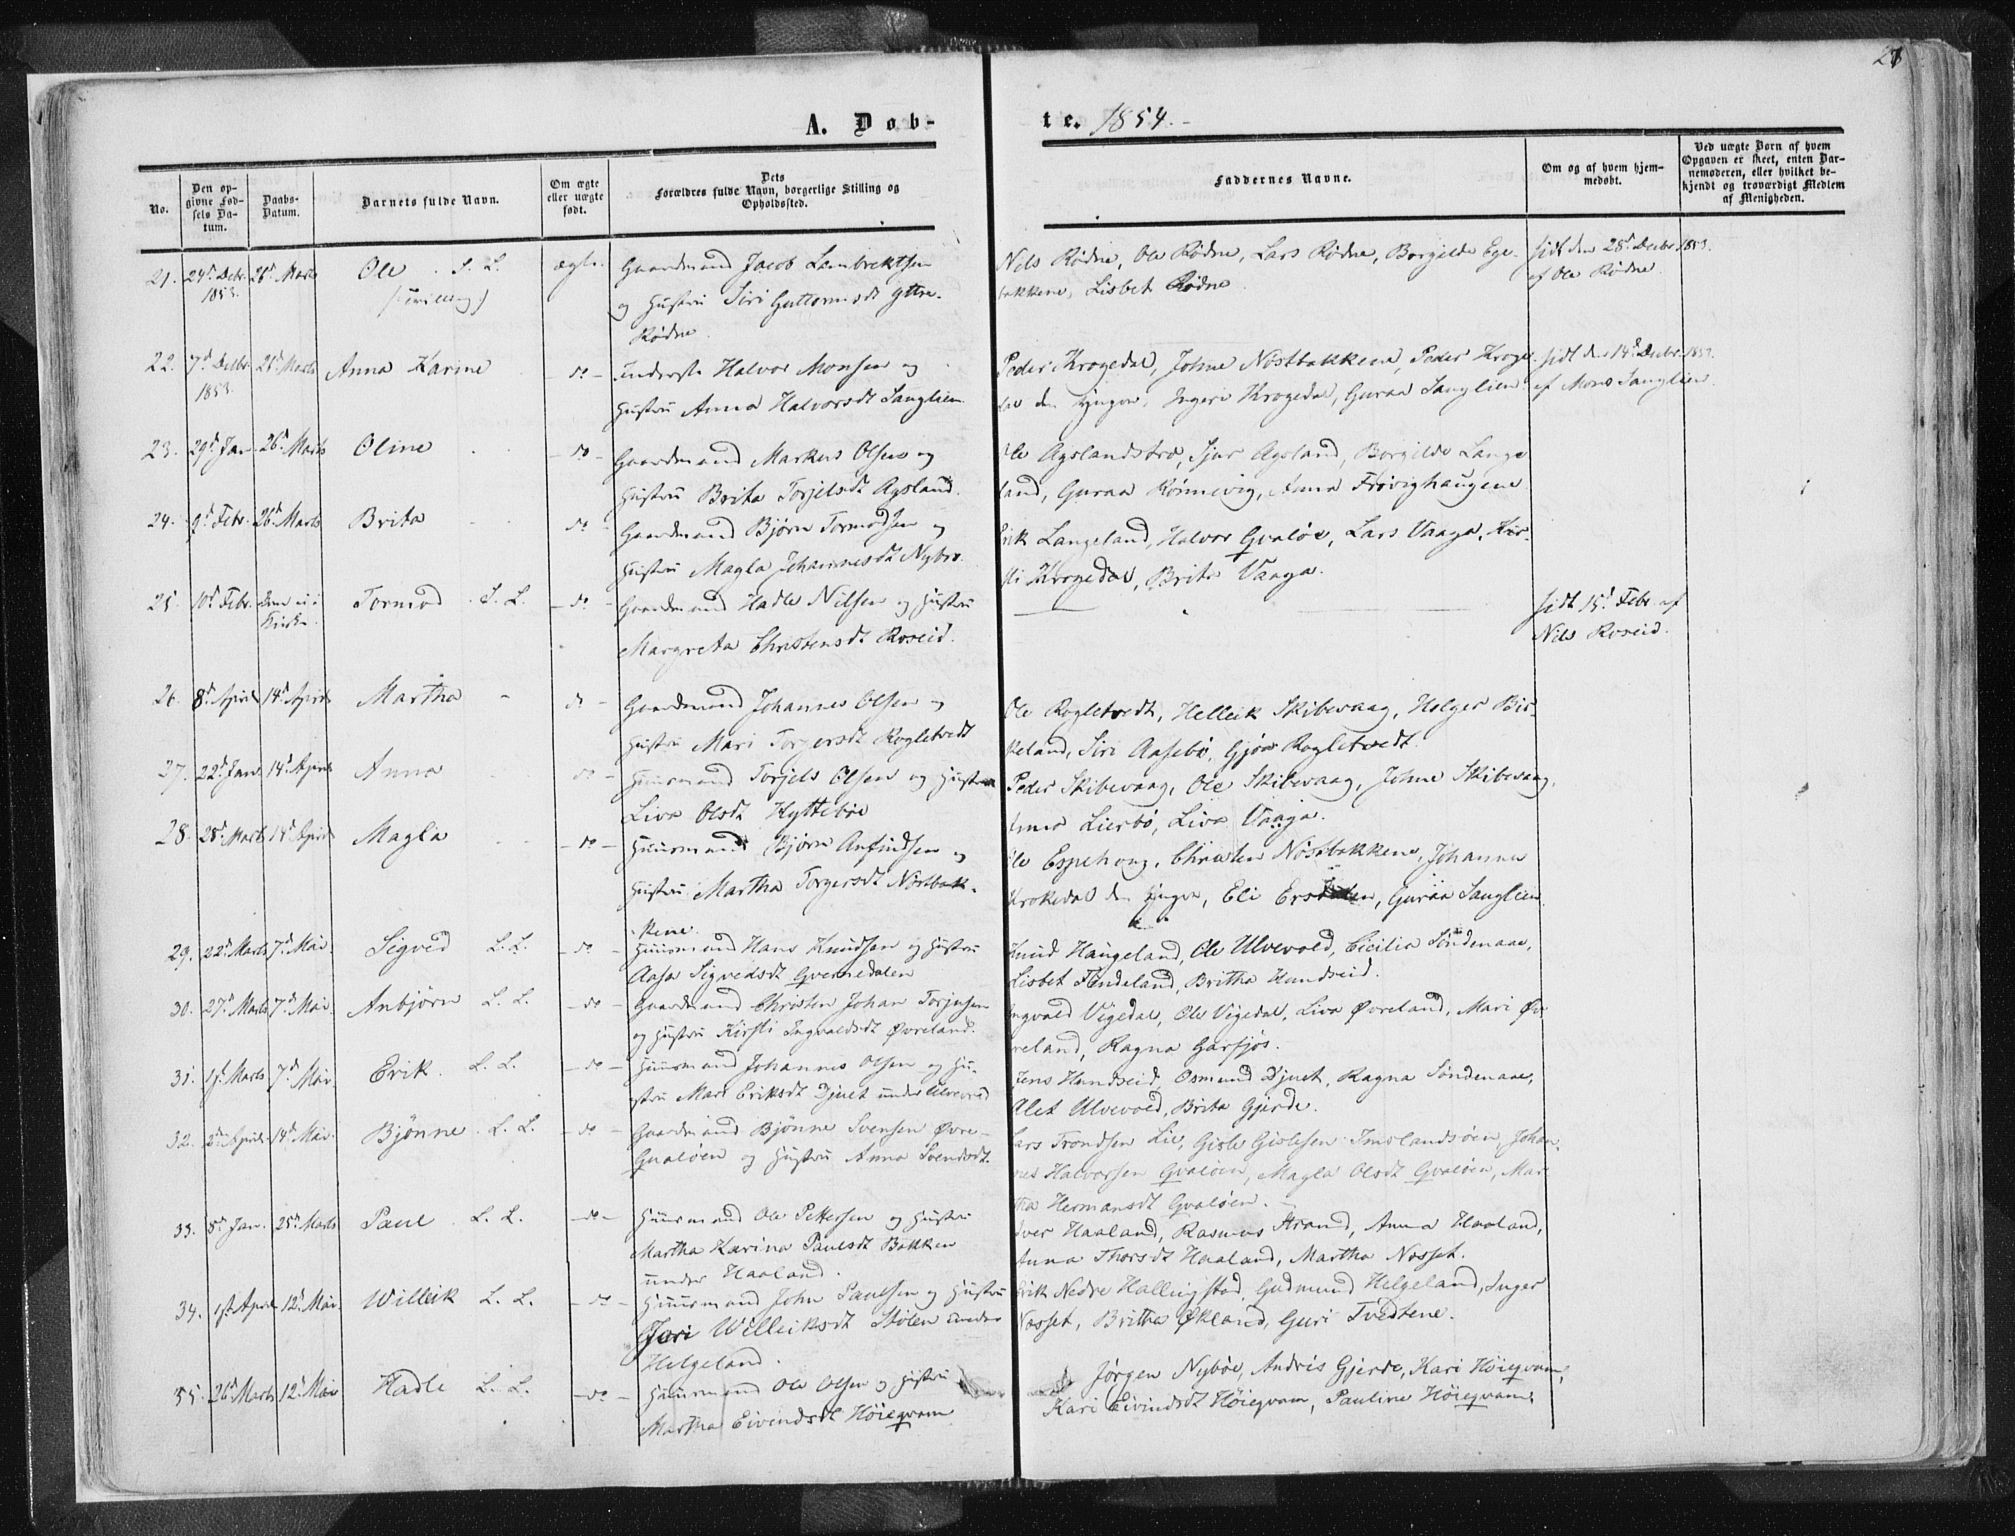 27
A. Døb-
te. 1854.
No.
Den opgivne Fødsels Datum.
Daabs-Datum.
Barnets fulde Navn.
Om ægte eller uægte født.
Dets Forældres fulde Navn, borgerlige Stilling og Opholdssted.
Faddernes Navne.
Om og af hvem hjemmedøbt.
Ved uægte Børn af hvem Opgaven er skeet, enten Barnemoderen, eller hvilket bekjendt og troværdigt Medlem af Menigheden.
21. 24d Debr. 1853. 26d Marts Ole S. L. ægte. Gaardmand Jacob Lambrektsen
og Hustru Siri Guttormsdt Yttre-
Rødne.
Nils Rødne, Ole Rødne, Lars Rødne, Borgilde Ege-
bakkene, Lisbet Rødne
hjdt den 28d Decbr. 1853.
af Ole Rødne.
22. 7d Decbr 1853. 26d Marts Anna Karine do Inderste Halvor Monsen og
Hustru Anna Halvorsdt Sanglien
Peder Krogedal, Johne Nøstbakkene, Peder Kroge-
dal den Yngre, Ingeri Krogedal, Guraa Sanglien
hjdt den 14d Decbr. 1853.
af Mons Sanglien.
23. 29d Jan. 26d Marts Oline do Gaardmand Markus Olsen og
Hustru Brita Torjelsdt Agsland.
Ole Agslandstrø, Sjur Agsland, Borgilde Lange
land, Guraa Rønnevig, Anna Frøvighaugene
24. 9d Febr. 26d Marts Brita do Gaardmand Bjørn Tormodsen og
Hustru Magla Johannesdt Nybrø.
Erik Langeland, Halvor Qvaløe, Lars Vaaga, Kir-
sti Krogedal, Brita Vaaga.
25. 10d Febr. Tormod S. L. do Gaardmand Hadle Nilsen og Hustru
Margreta Christensdt Roseid.
hjdt 15d Febr. af
Nils Roseid.
26. 8d April 14d April Martha do Gaardmand Johannes Olsen og
Hustru Mari Torgersdt Rogletvedt
Ole Rogletvedt, Helleik Skibevaag, Holger Bir-
keland, Siri Aasebø, Gjøa Rogletvedt.
27. 22d Jan. 14d April Anna do Huusmand Torjels Olsen og Hustru
Liva Olsdt Hyttebøe
Peder Skibevaag, Ole Skibevaag, Johne Skibevaag,
Anna Lierbø, Liva Vaaga.
28. 28d Marts 14d April Magla do Huusmand Bjørn Anfindsen og
Hustru Martha Torgersdt Nøstbak-
kene.
Ole Espehoug, Christen Nøstbakkene, Johannes
Krokedal den Yngre, Eli, Guraa Sanglien
29. 22d Marts 7d Mai Sigved L. L. do Huusmand Hans Knudsen og Hustru
Aasa Sigvedsdt Qvernedalen
Knud Haugeland, Ole Ulvevold, Cicilia Søndenaae,
Lisbet Tindeland, Britha Hundseid.
30. 27d Marts 7d Mai Anbjørn L. L. do Gaardmand Christen Johan Torjusen
og Hustru Kirsti Ingvaldsdt Øvreland.
Ingvald Vigedal, Ole Vigedal, Liva Øvreland, Mari Øv-
reland, Ragna Garsjøs.
31. Marts 7d Mai Erik L. L. do Huusmand Johannes Olsen og Hu-
stru Mari Eriksdt Djuet under Ulvevold
Jens Hundseid, Osmund Djuet, Ragna Søndenaae,
Alet Ulvevold, Brita Gjerde.
32. 2d April 14d Mai Bjønne L. L. do Gaardmand Bjønne Svensen Øvre-
Qvaløen og Hustru Anna Svendsdt
Lars Trondsen Lie, Gisle Gislesen Imslandsøen, Johan-
nes Halvorsen Qvaløen, Magla Olsdt Qvaløen, Mar
tha Hermansdt Qvaløen.
33. 8d Jan. 25d Marts Paul L. L. do Huusmand Ole Pettersen og Hustru
Martha Karina Paulsdt Bakken
under Haaland.
Iver Haaland, Rasmus Strand, Anna Haaland,
Anna Thorsdt Haaland, Martha Nosset.
34. 1st April 12d Mai Willeik L. L. do Huusmand John Paulsen og Hustru
Jori Willeiksdt Stølen under
Helgeland.
Erik Nedre Hallingstad, Gudmund Helgeland, Inger
Nosset, Britha Økland, Guri Tvedtene.
35. 26d Marts 12d Mai Hadle L. L. do Huusmand Ole Olsen og Hustru
Martha Eivindsdt Høieqvam
Jørgen Nybøe, Andris Gjerde, Kari Høieqvam,
Kari Eivindsdt Høieqvam, Pauline Høieqvam.